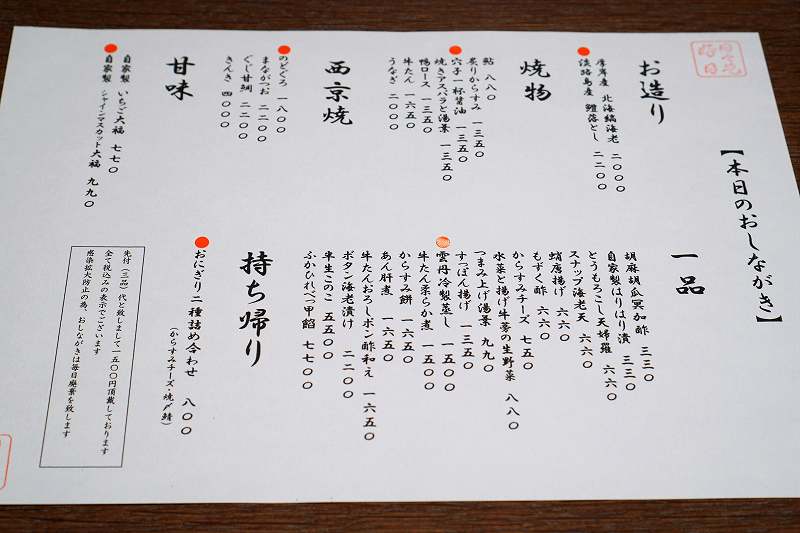 【本日のおしながき】
お造り
厚岸産 北海縞海老 二〇〇〇
淡路島産 鱧落とし 二二〇〇
焼物
鮎 八八〇
炙りからすみ 一三五〇
穴子一杯醤油 一三五〇
焼きアスパラと湯葉 一三五〇
鴨ロース 一三五〇
牛たん 一六五〇
うなぎ 二〇〇〇
西京焼
のどぐろ 一八〇〇
まながつお 二二〇〇
ぐじ甘鯛 二二〇〇
きんき 四〇〇〇
甘味
自家製 いちご大福 七七〇
自家製 シャインマスカット大福 九九〇
一品
胡麻胡瓜冥加酢 三三〇
自家製はりはり漬 三三〇
とうもろこし天婦羅 六六〇
スナップ海老天 六六〇
蛸唐揚げ 六六〇
もずく酢 六六〇
からすみチーズ 七五〇
水菜と揚げ牛蒡の生野菜 八八〇
つまみ上げ湯葉 九九〇
すっぽん揚げ 一三五〇
雲丹冷製蒸し 一五〇〇
牛たん柔らか煮 一五〇〇
からすみ餅 一六五〇
あん肝煮 一六五〇
牛たんおろしポン酢和え 一六五〇
ボタン海老漬け 二二〇〇
半生このこ 五五〇〇
ふかひれべっ甲餡 七七〇〇
持ち帰り
おにぎり二種詰め合わせ 八〇〇
(からすみチーズ・焼〆鯖)
先付(三品)代と致しまして一五〇〇円頂戴しております
全て税込みの表示でございます
感染拡大防止の為、おしながきは毎日廃棄を致します